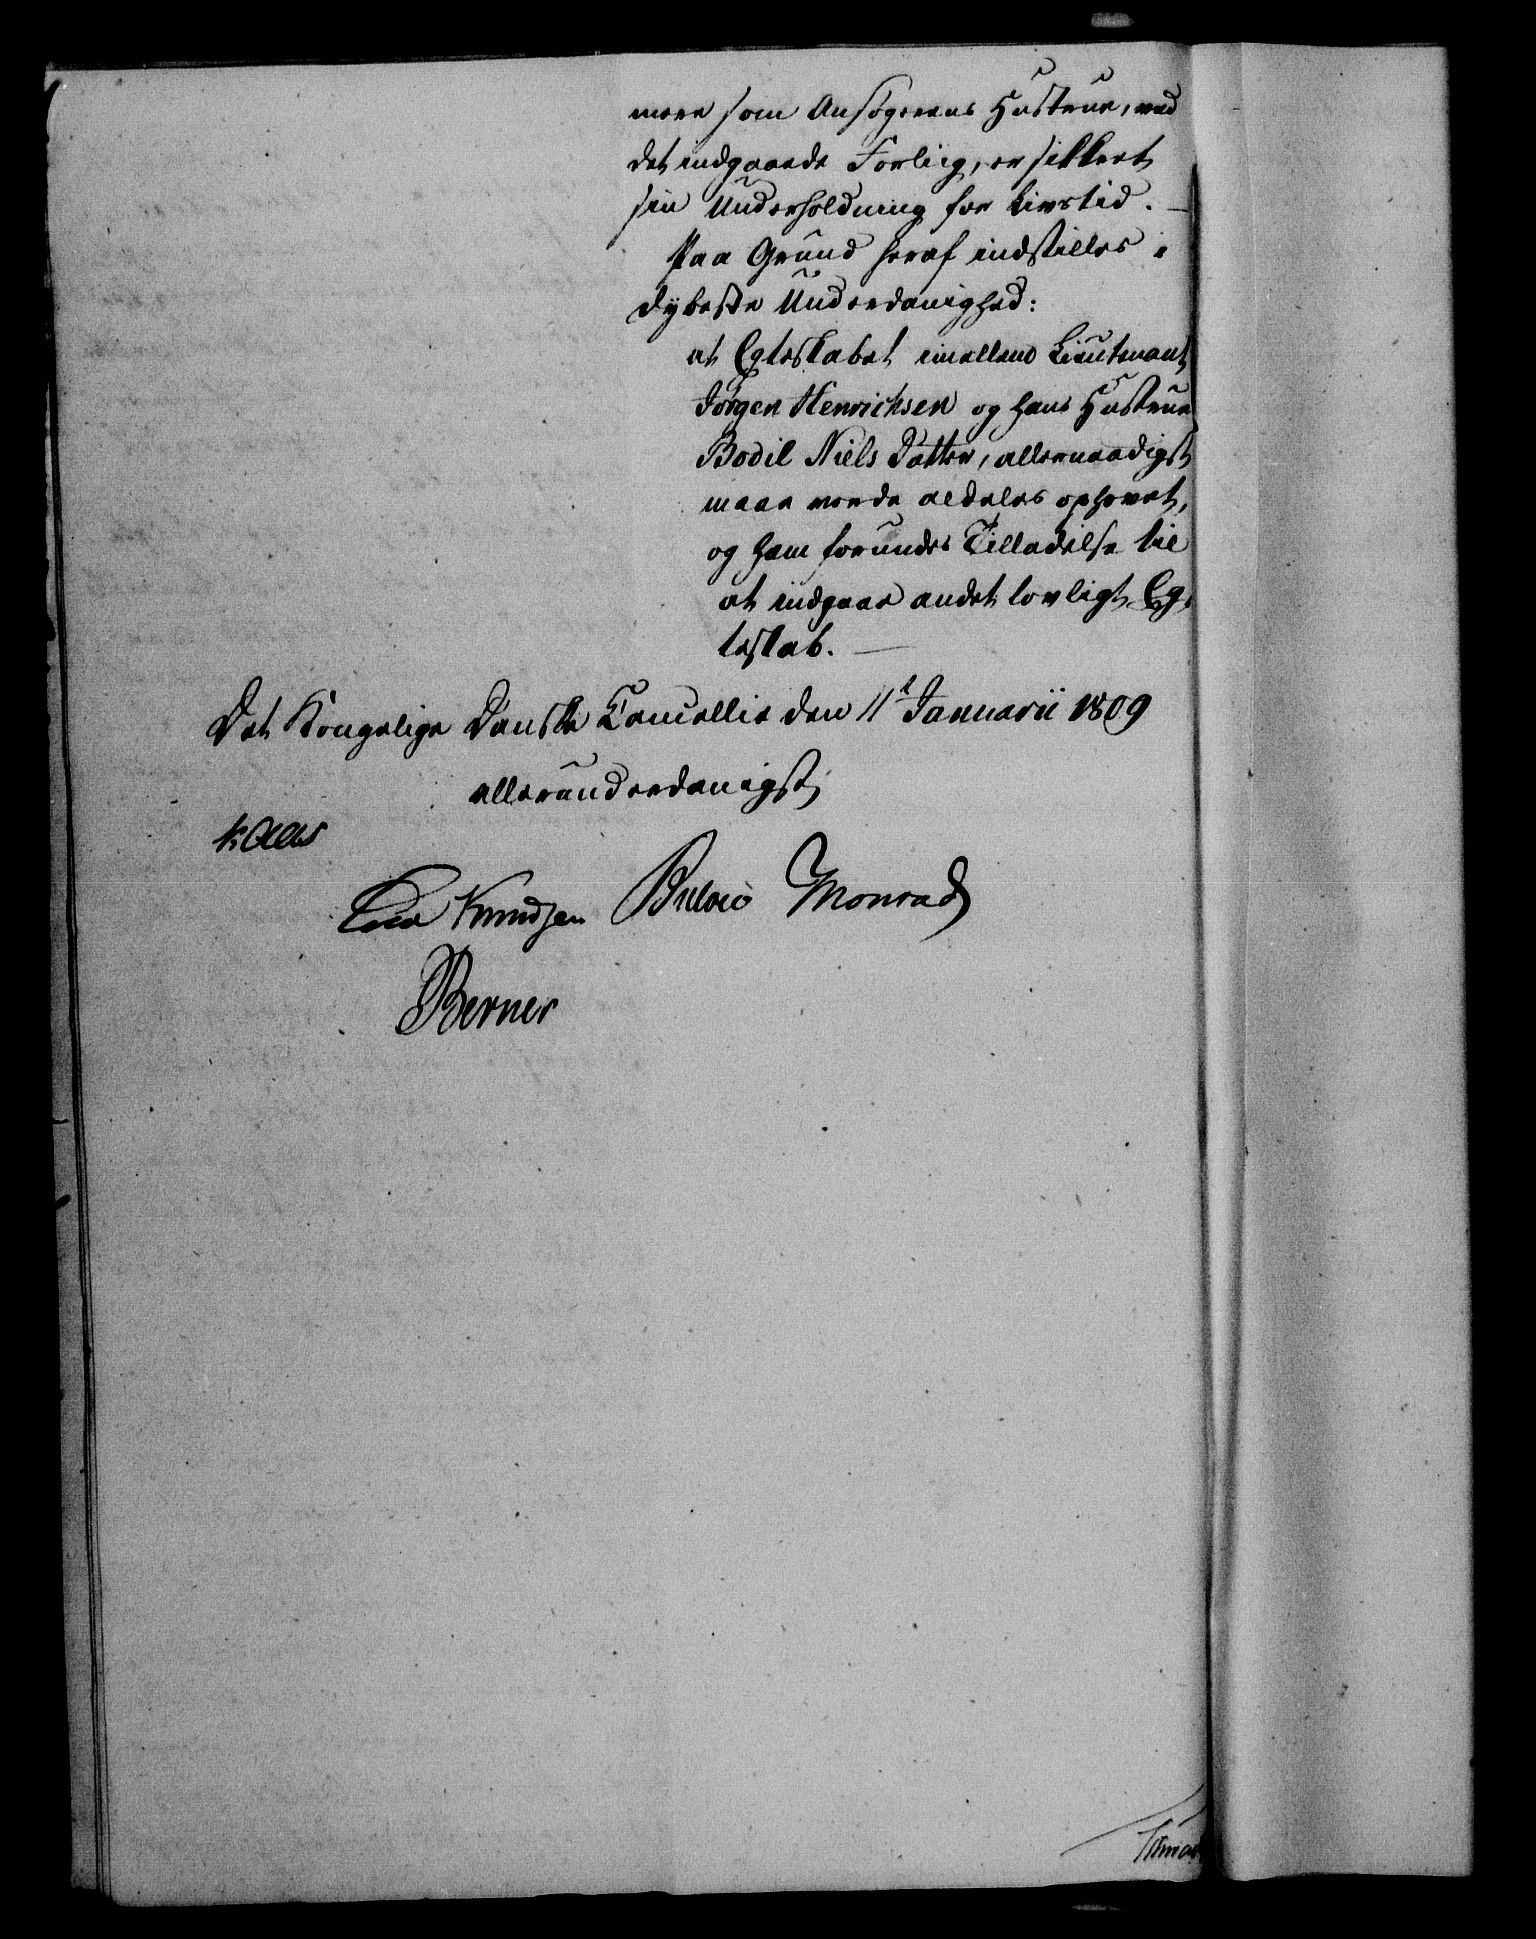 mere som Ansøgerens Hustrue, ved
det indgaaede Forliig, er sikkert
sin Underholdning for Livstid. —
Paa Grund heraf indstilles i
dybeste Underdanighed:
at Egteskabet imellem Lieutenant
Jørgen Henrichsen og hans Hustrue
Bodil Niels Datter, allernaadigst
maae vorde aldeles ophevet,
og ham forundes Tilladelse til
at indgaae andet lovligt Eg-
teskab. —
Det Kongelige Danske Cancellie den 11t Januarii 1809
allerunderdanigst
Kaas
Cold Knudsen Bülow Monrad
Berner